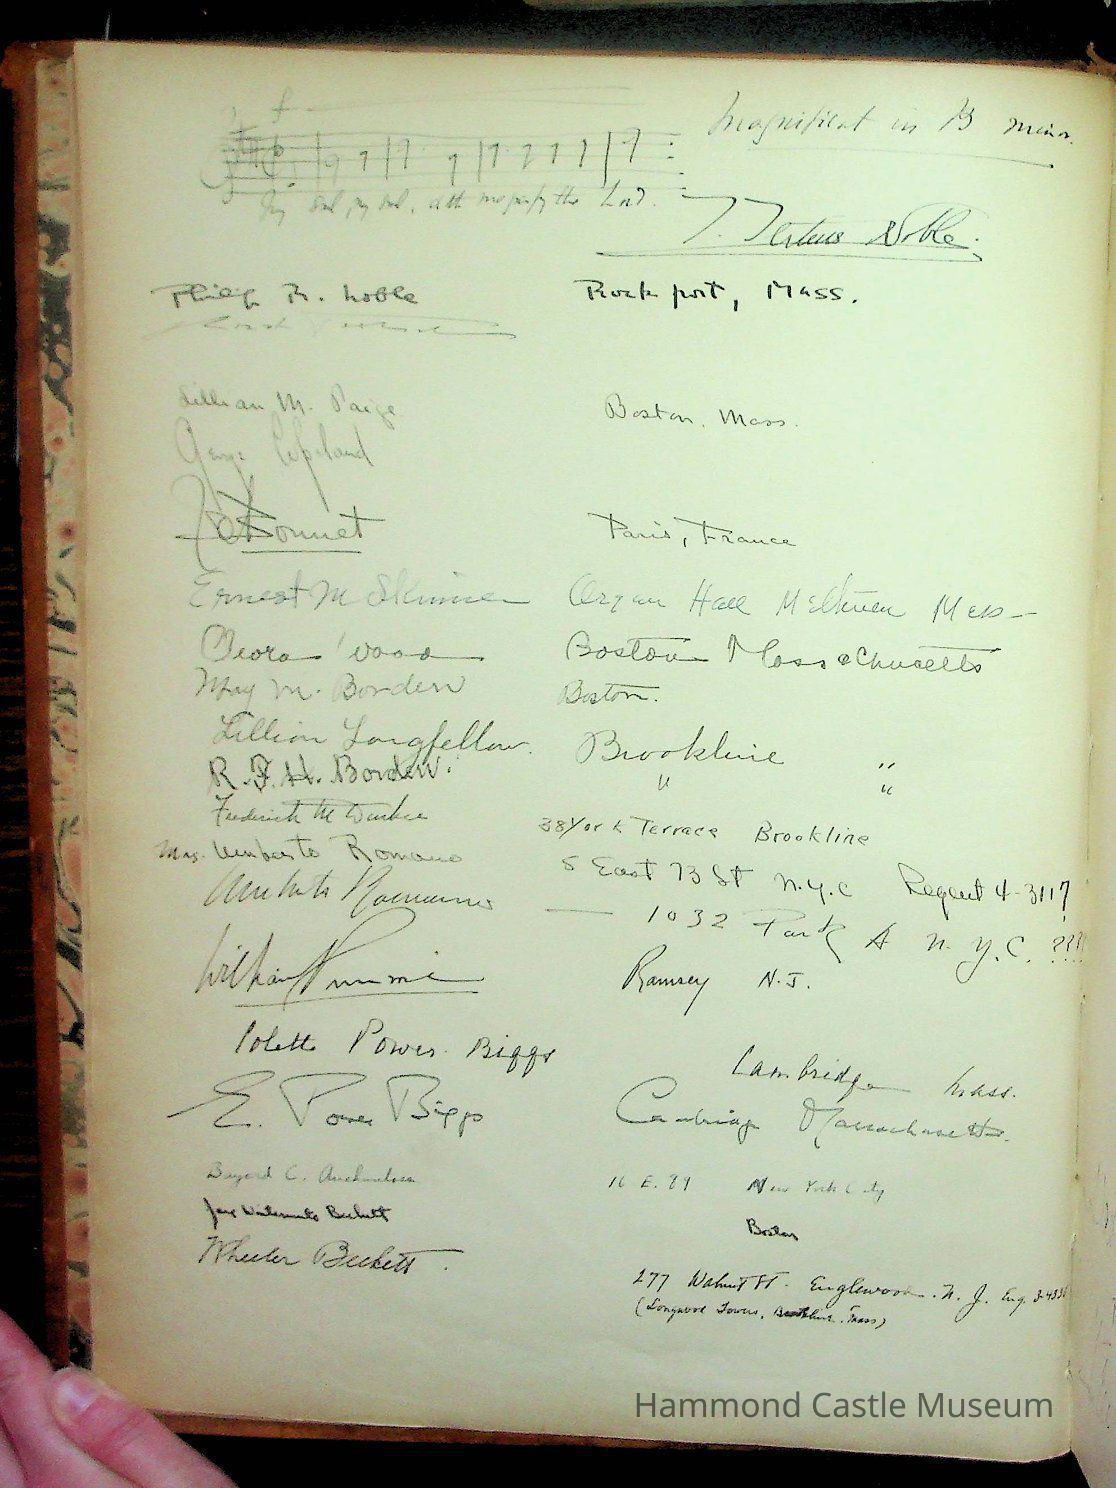 Magnificat in B minor.
My soul, my soul, doth magnify the Lord.
T. Tertius Noble.
Philip R. Noble Rockport, Mass.
Lillian M. Paige Boston, Mass.
George Copeland
Bonnet Paris, France
Ernest M Skinner Organ Hall Methuen Mass
Wood Boston Massachusetts
May M. Borden Boston.
Lillian Longfellow. Brookline "
R. F. H. Borden. " "
Frederick M 38 York Terrace Brookline
Mrs. Umberto Romano 8 East 73 St N.Y.C Regent 4-3117
Umberto Romano 1032 Park A N.Y.C. ????
William Ramsey N.J.
Colette Power Biggs Cambridge Mass.
E. Power Biggs Cambridge Massachusetts.
Bayard C. 16 E. 89 New York City
Beckett Boston
Wheeler Beckett. 277 Walnut St. Englewood. N. J. Eng.
(Longwood Towers, Brookline. Mass)
Hammond Castle Museum